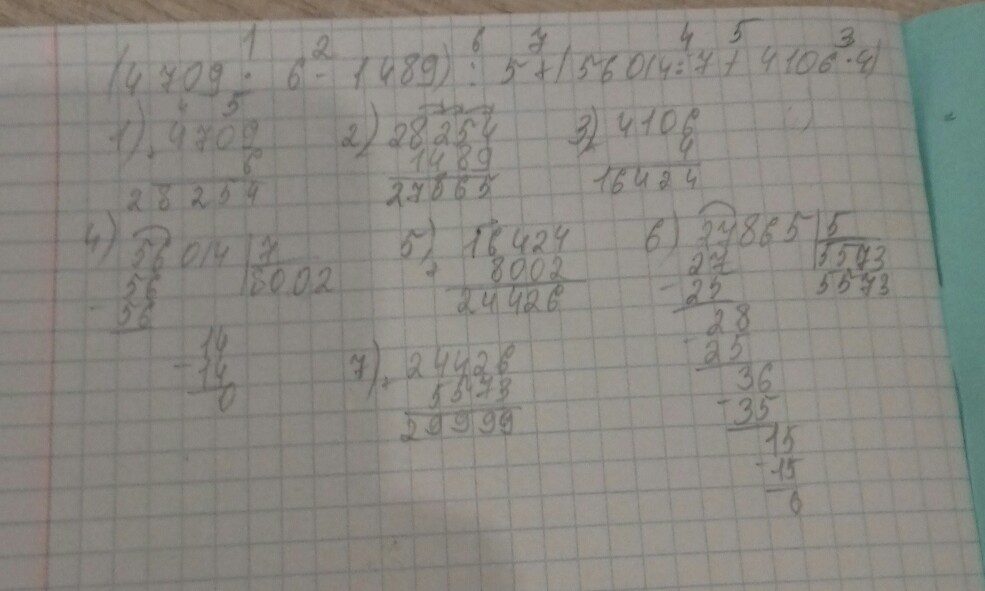 1 2 6 7 4 5 3
(4709 · 6 - 1489) : 5 + (56014 : 7 + 4106 · 4)
4 5
1) 4709 2) 28254 3) 4106
6 1489 4
28254 27865 16424
4) 56014 | 7 5) 16424 6) 27865 | 5
56 8002 + 8002 27 5573
- 56 24426 - 25 5573
14 28
- 14 - 25
0 36
7) + 24426 - 35
5573 15
29999 - 15
0